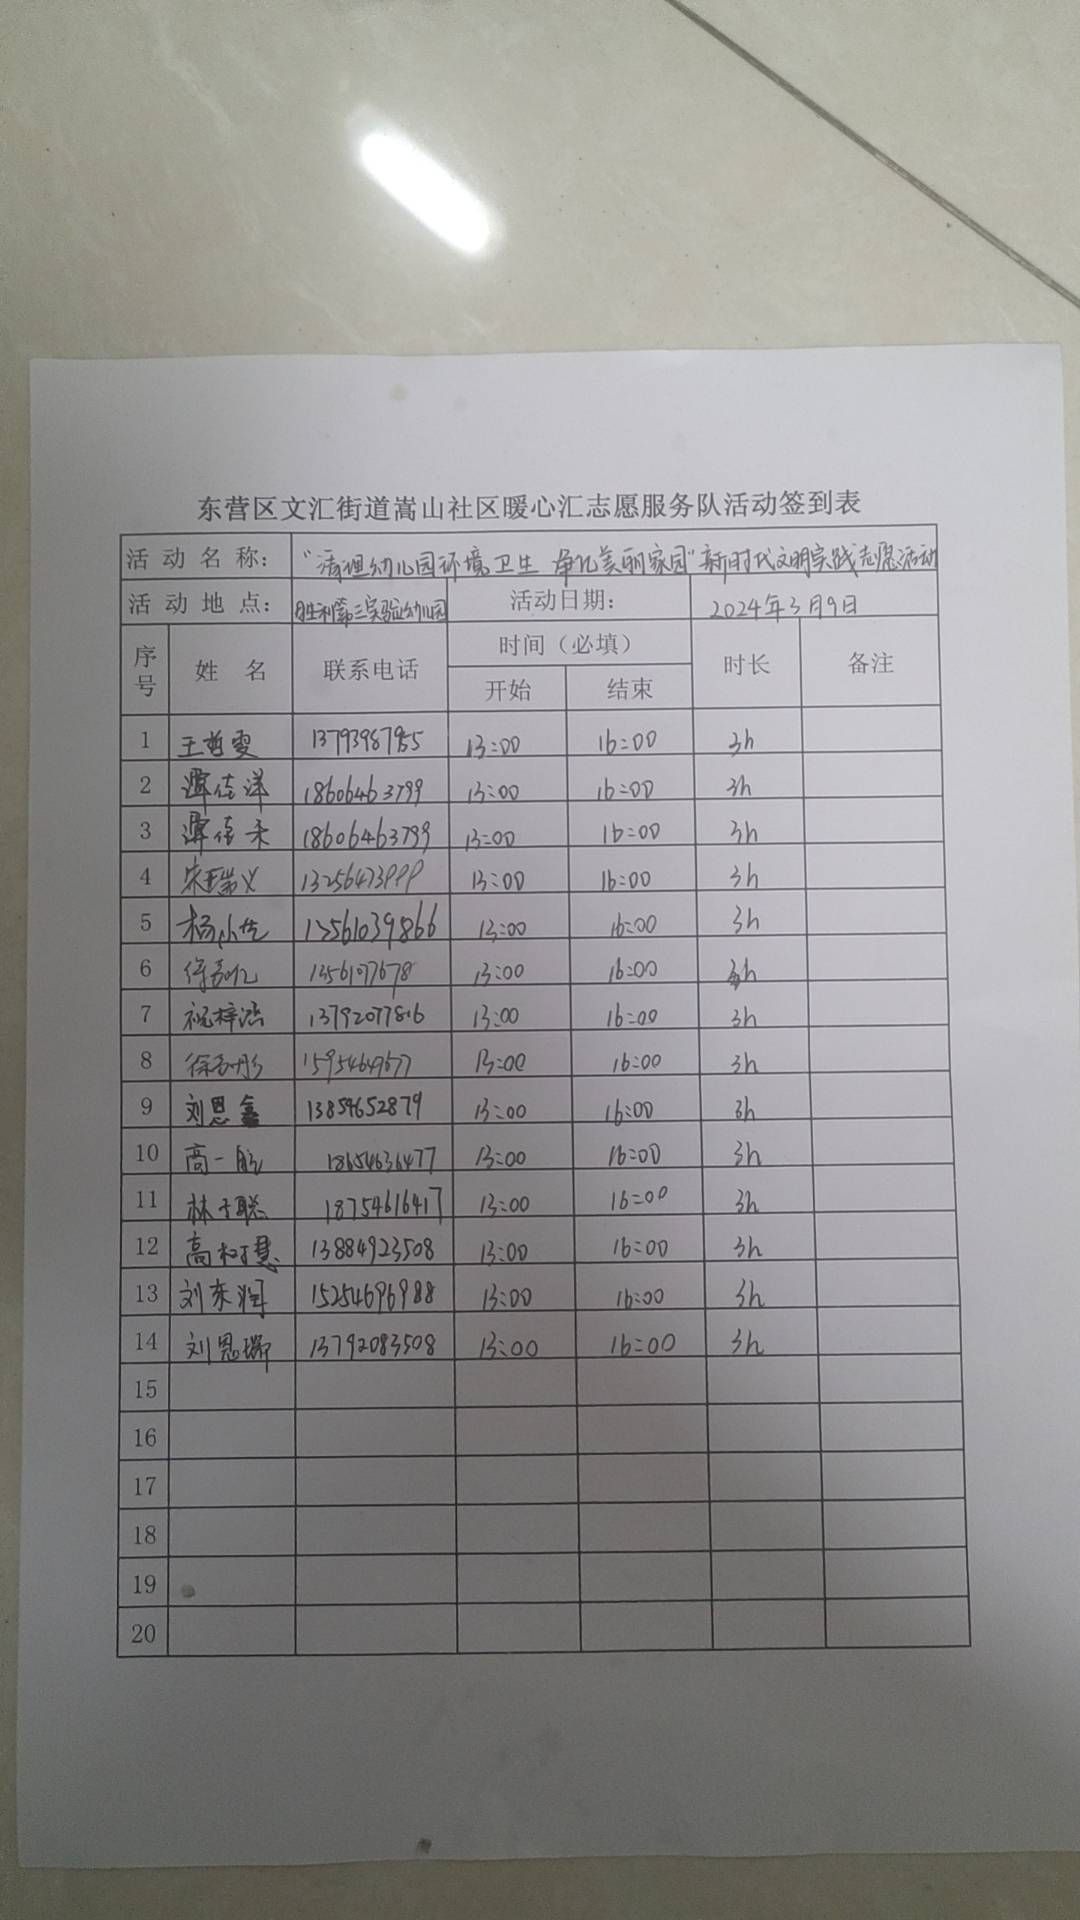 东营区文汇街道嵩山社区暖心汇志愿服务队活动签到表
活动名称： “清理幼儿园环境卫生 净化美丽家园”新时代文明实践志愿活动
活动地点： 胜利第三实验幼儿园 活动日期： 2024年3月9日
序号 姓名 联系电话 时间（必填） 时长 备注
开始 结束
1 王哲雯 13793987955 13:00 16:00 3h
2 谭佳洋 18606463799 13:00 16:00 3h
3 谭佳禾 18606463799 13:00 16:00 3h
4 宋瑞义 13256473999 13:00 16:00 3h
5 13561039866 13:00 16:00 3h
6 13561077678 13:00 16:00 3h
7 祝梓涵 13792077816 13:00 16:00 3h
8 15954649677 13:00 16:00 3h
9 刘恩鑫 13854652879 13:00 16:00 3h
10 高一航 18654636477 13:00 16:00 3h
11 林子聪 18754616417 13:00 16:00 3h
12 高树慧 13884923508 13:00 16:00 3h
13 刘东润 15254696988 13:00 16:00 3h
14 刘恩瑞 13792083508 13:00 16:00 3h
15
16
17
18
19
20